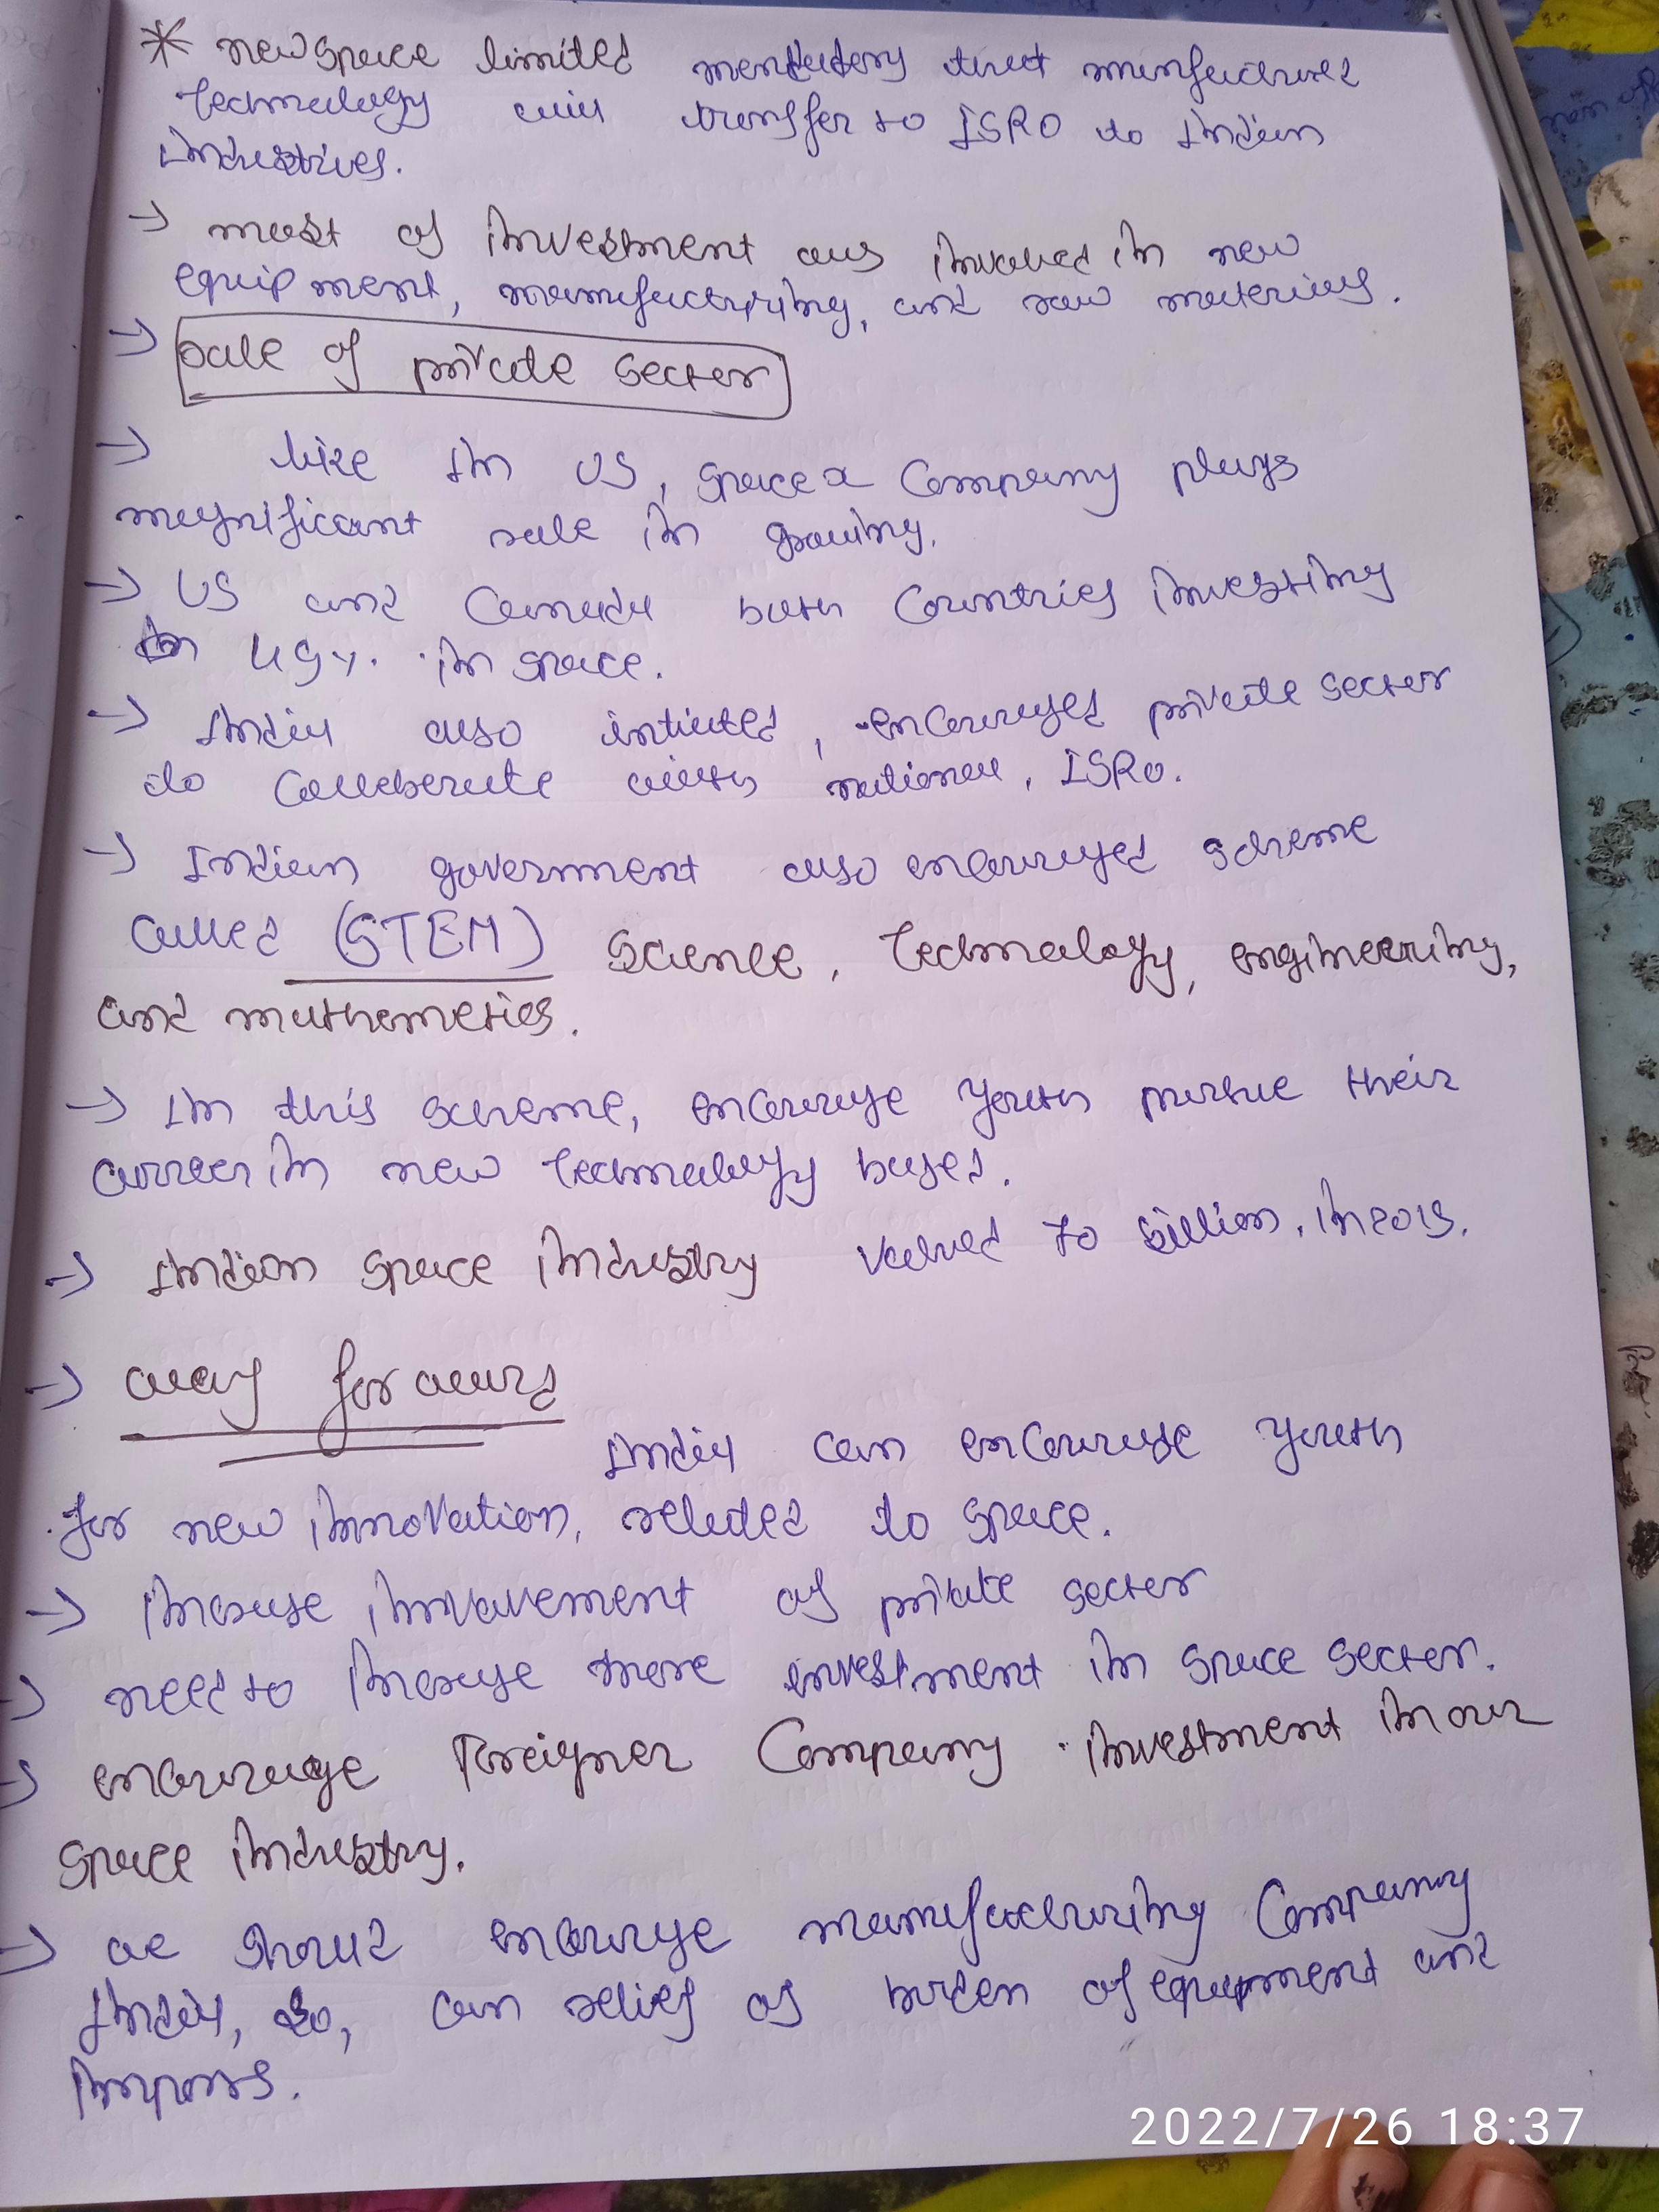 * newspace limited mendatory that manufactured
technology will transfer to ISRO to Indian
industries.
→ most of investment was involved in new
equipment, manufacturing, and raw materials.
→ Role of private sector
→ like In US, spacex Company plays
magnificant role in growing.
→ US and Canada both Countries investing
In 49%. in space.
→ India also intiated, encourages private sector
to Colleberate with national, ISRO.
→ Indian government also encouraged scheme
called (STEM) Science, technology, engineering,
and mathemetics.
→ In this scheme, encourage youth pursue their
carreer in new technology based.
→ Indian space industry valued 70 billion, in 2019.
→ way forward
India can encourage youth
for new innovation, related to space.
→ increase involvement of private sector
→ need to increase more investment in space sector.
→ encourage Foreigner Company investment in our
space industry.
→ we should encourage manufacturing Company
India, so, can relief of burden of equipment and
imports.
2022/7/26 18:37